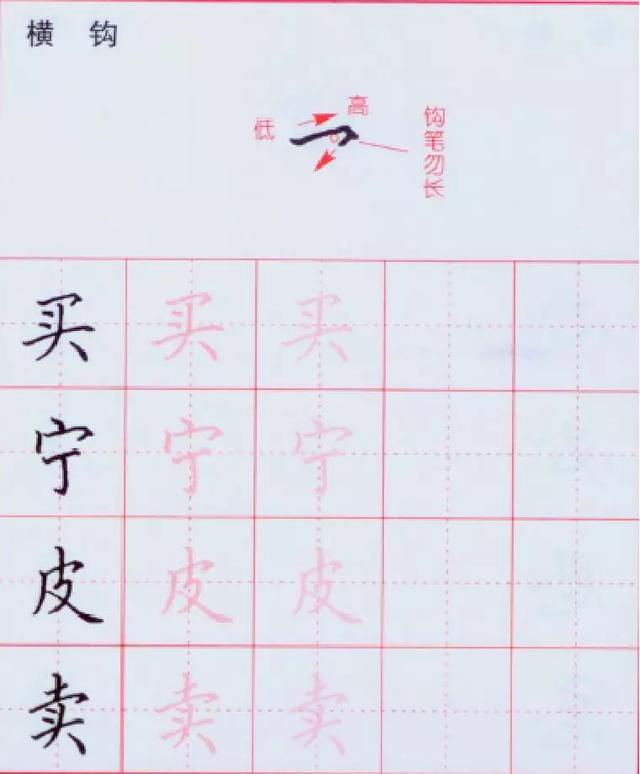 横 钩
低
高
钩笔勿长
买 买 买
宁 宁 宁
皮 皮 皮
卖 卖 卖